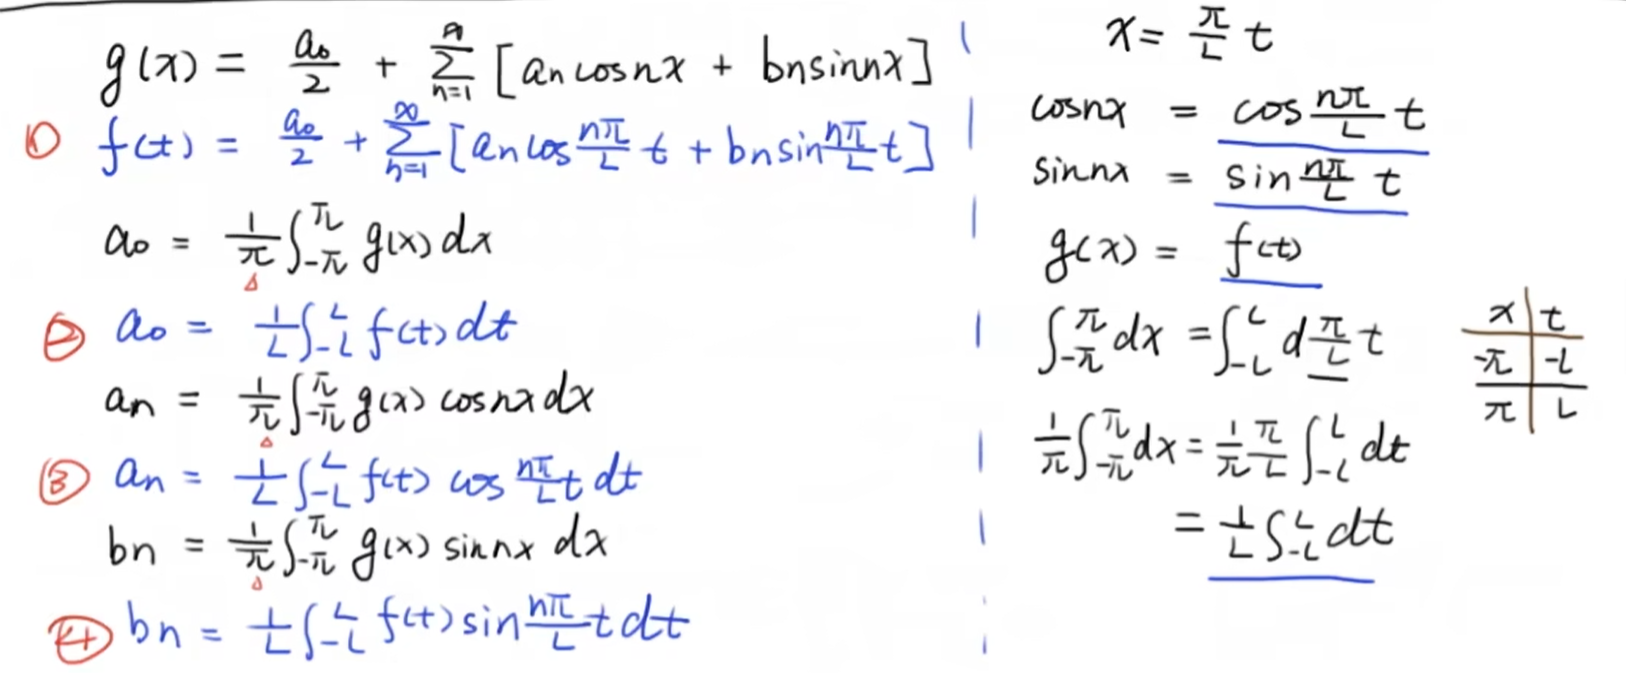 g(x) = a₀/2 + ∑_{n=1}^{∞} [an cosnx + bn sinnx]
① f(t) = a₀/2 + ∑_{n=1}^{∞} [an cos nπ/L t + bn sin nπ/L t]
a₀ = 1/π ∫_{-π}^{π} g(x) dx
△
② a₀ = 1/L ∫_{-L}^{L} f(t) dt
an = 1/π ∫_{-π}^{π} g(x) cosnx dx
△
③ an = 1/L ∫_{-L}^{L} f(t) cos nπ/L t dt
bn = 1/π ∫_{-π}^{π} g(x) sinnx dx
△
④ bn = 1/L ∫_{-L}^{L} f(t) sin nπ/L t dt
x = π/L t
cosnx = cos nπ/L t
sinnx = sin nπ/L t
g(x) = f(t)
∫_{-π}^{π} dx = ∫_{-L}^{L} d π/L t
1/π ∫_{-π}^{π} dx = 1/π π/L ∫_{-L}^{L} dt
= 1/L ∫_{-L}^{L} dt
x t
-π -L
π L